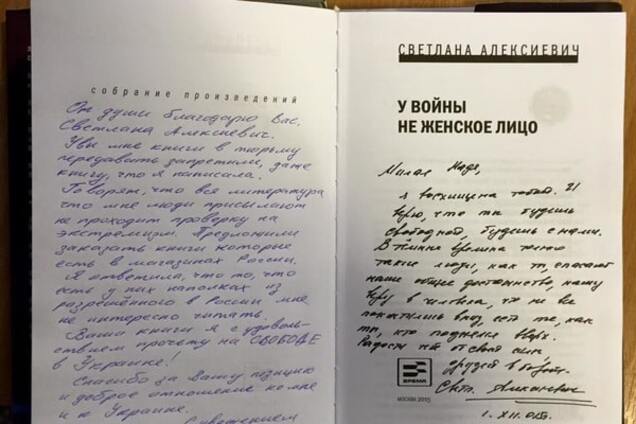 собрание произведений
От души благодарю Вас,
Светлана Алексиевич.
Увы мне книги в тюрьму
передавать запретили, даже
книгу, что я написала.
Говорят, что вся литература
что мне люди присылают
не проходит проверку на
экстремизм. Предложили
заказать книги которые
есть в магазинах России.
Я ответила, что то, что
есть у них на полках из
разрешённого в России мне
не интересно читать.
Ваши книги я с удоволь-
ствием прочту на СВОБОДЕ
в Украине!
Спасибо за Вашу позицию
и доброе отношение ко мне
и к Украине.
С уважением
СВЕТЛАНА АЛЕКСИЕВИЧ
У ВОЙНЫ
НЕ ЖЕНСКОЕ ЛИЦО
Милая Надя,
я восхищена тобой. Я
верю, что ты будешь
свободной, будешь с нами.
В темные времена только
такие люди, как ты, спасают
наше общее достоинство, нашу
веру в человека, то не все
как
ты, кто
Радости
друзей
Светл. Алексиевич
1. XII.
ВРЕМЯ
МОСКВА 2015